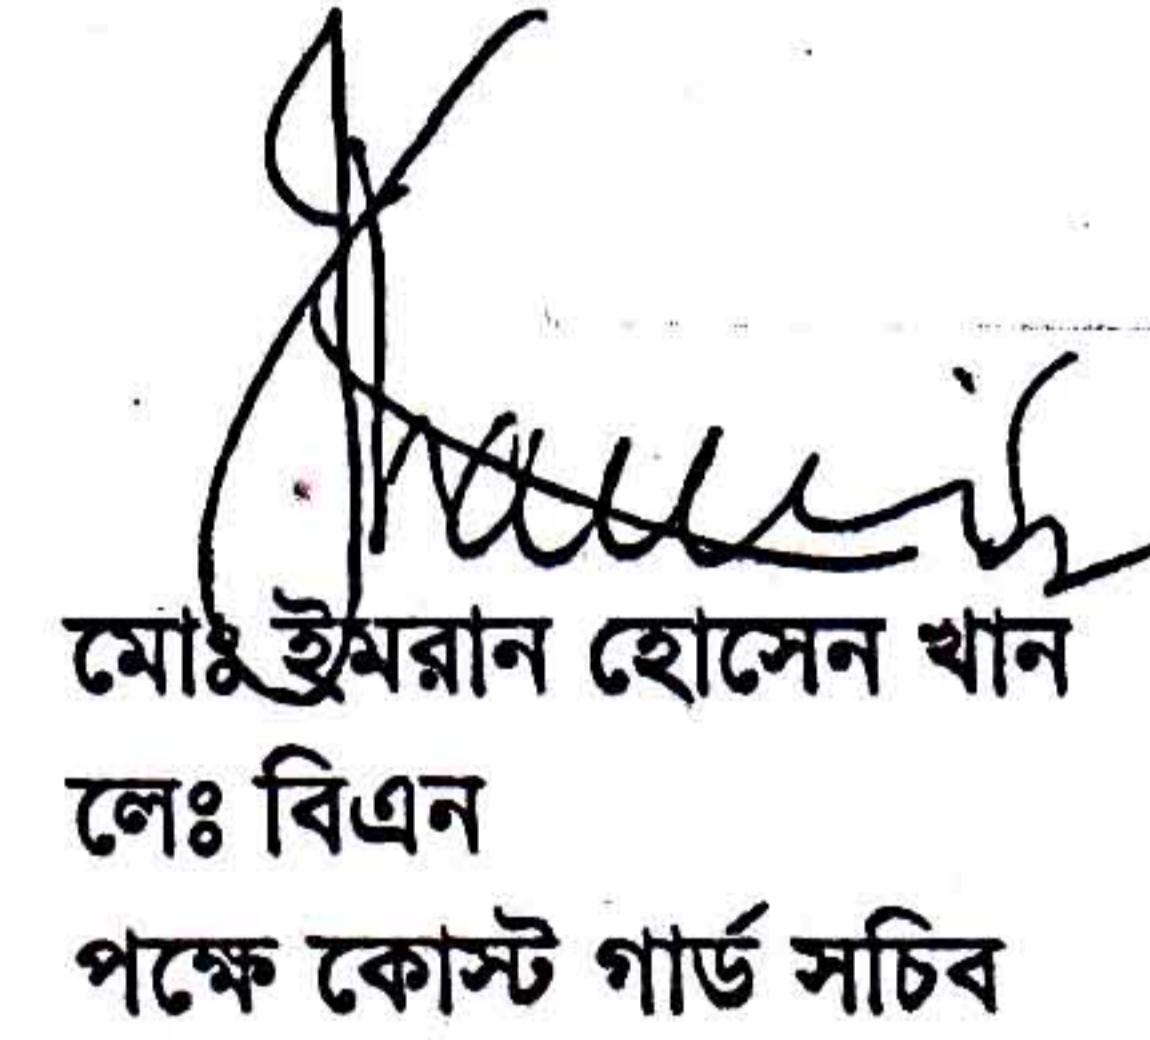 মোঃ ইমরান হোসেন খান
লেঃ বিএন
পক্ষে কোস্ট গার্ড সচিব